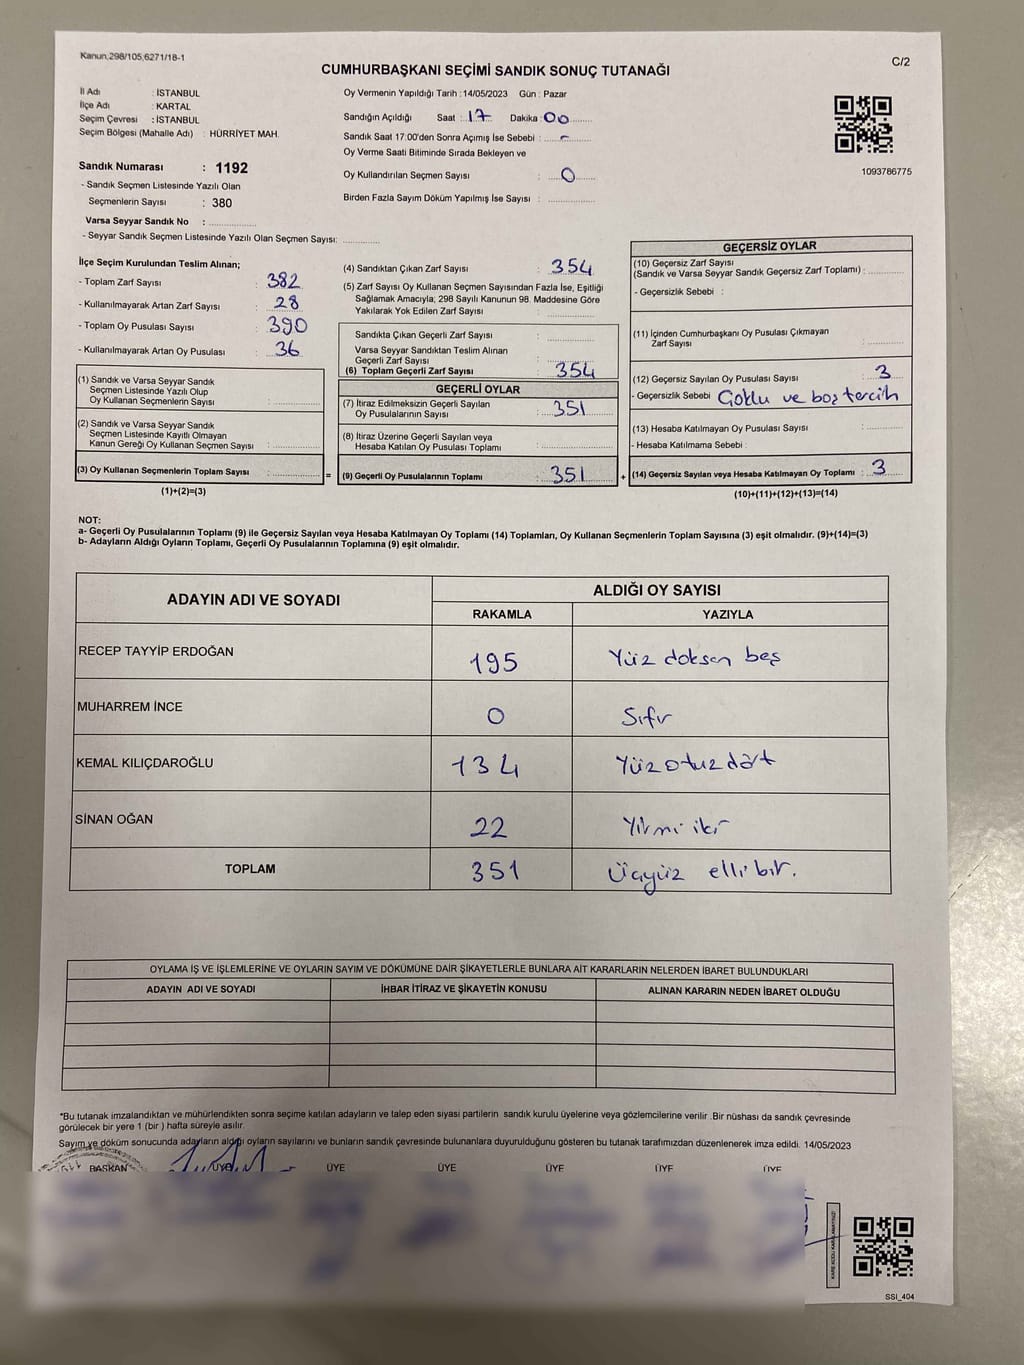 Kanun,298/105,6271/18-1
C/2
CUMHURBAŞKANI SEÇİMİ SANDIK SONUÇ TUTANAĞI
İl Adı : İSTANBUL
İlçe Adı : KARTAL
Seçim Çevresi : İSTANBUL
Seçim Bölgesi (Mahalle Adı) : HÜRRİYET MAH.
Sandık Numarası : 1192
- Sandık Seçmen Listesinde Yazılı Olan
Seçmenlerin Sayısı : 380
Varsa Seyyar Sandık No : ..............
- Seyyar Sandık Seçmen Listesinde Yazılı Olan Seçmen Sayısı: ............
Oy Vermenin Yapıldığı Tarih : 14/05/2023 Gün : Pazar
Sandığın Açıldığı Saat : 17 Dakika : 00
Sandık Saat 17:00'den Sonra Açımış İse Sebebi : -
Oy Verme Saati Bitiminde Sırada Bekleyen ve
Oy Kullandırılan Seçmen Sayısı : 0
Birden Fazla Sayım Döküm Yapılmış İse Sayısı : ..............
1093786775
İlçe Seçim Kurulundan Teslim Alınan;
- Toplam Zarf Sayısı : 382
- Kullanılmayarak Artan Zarf Sayısı : 28
- Toplam Oy Pusulası Sayısı : 390
- Kullanılmayarak Artan Oy Pusulası : 36
(1) Sandık ve Varsa Seyyar Sandık
Seçmen Listesinde Yazılı Olup
Oy Kullanan Seçmenlerin Sayısı : ..............
(2) Sandık ve Varsa Seyyar Sandık
Seçmen Listesinde Kayıtlı Olmayan
Kanun Gereği Oy Kullanan Seçmen Sayısı : ..............
(3) Oy Kullanan Seçmenlerin Toplam Sayısı : ..............
(1)+(2)=(3)
=
(4) Sandıktan Çıkan Zarf Sayısı : 354
(5) Zarf Sayısı Oy Kullanan Seçmen Sayısından Fazla İse, Eşitliği
Sağlamak Amacıyla; 298 Sayılı Kanunun 98. Maddesine Göre
Yakılarak Yok Edilen Zarf Sayısı : ..............
Sandıkta Çıkan Geçerli Zarf Sayısı : ..............
Varsa Seyyar Sandıktan Teslim Alınan
Geçerli Zarf Sayısı : ..............
(6) Toplam Geçerli Zarf Sayısı : 354
GEÇERLİ OYLAR
(7) İtiraz Edilmeksizin Geçerli Sayılan
Oy Pusulalarının Sayısı : 351
(8) İtiraz Üzerine Geçerli Sayılan veya
Hesaba Katılan Oy Pusulaları Toplamı : ..............
(9) Geçerli Oy Pusulalarının Toplamı : 351
+
GEÇERSİZ OYLAR
(10) Geçersiz Zarf Sayısı
(Sandık ve Varsa Seyyar Sandık Geçersiz Zarf Toplamı) : ............
- Geçersizlik Sebebi :
(11) İçinden Cumhurbaşkanı Oy Pusulası Çıkmayan
Zarf Sayısı : ............
(12) Geçersiz Sayılan Oy Pusulası Sayısı : 3
- Geçersizlik Sebebi Çoklu ve boş tercih
(13) Hesaba Katılmayan Oy Pusulası Sayısı : ............
- Hesaba Katılmama Sebebi :
(14) Geçersiz Sayılan veya Hesaba Katılmayan Oy Toplamı : 3
(10)+(11)+(12)+(13)=(14)
NOT:
a- Geçerli Oy Pusulalarının Toplamı (9) ile Geçersiz Sayılan veya Hesaba Katılmayan Oy Toplamı (14) Toplamları, Oy Kullanan Seçmenlerin Toplam Sayısına (3) eşit olmalıdır. (9)+(14)=(3)
b- Adayların Aldığı Oyların Toplamı, Geçerli Oy Pusulalarının Toplamına (9) eşit olmalıdır.
ADAYIN ADI VE SOYADI
ALDIĞI OY SAYISI
RAKAMLA YAZIYLA
RECEP TAYYİP ERDOĞAN 195 Yüz doksan beş
MUHARREM İNCE 0 Sıfır
KEMAL KILIÇDAROĞLU 134 Yüz otuz dört
SİNAN OĞAN 22 Yirmi iki
TOPLAM 351 Üçyüz elli bir.
OYLAMA İŞ VE İŞLEMLERİNE VE OYLARIN SAYIM VE DÖKÜMÜNE DAİR ŞİKAYETLERLE BUNLARA AİT KARARLARIN NELERDEN İBARET BULUNDUKLARI
ADAYIN ADI VE SOYADI İHBAR İTİRAZ VE ŞİKAYETİN KONUSU ALINAN KARARIN NEDEN İBARET OLDUĞU
*Bu tutanak imzalandıktan ve mühürlendikten sonra seçime katılan adayların ve talep eden siyasi partilerin sandık kurulu üyelerine veya gözlemcilerine verilir .Bir nüshası da sandık çevresinde
görülecek bir yere 1 (bir ) hafta süreyle asılır.
Sayım ve döküm sonucunda adayların aldığı oyların sayılarını ve bunların sandık çevresinde bulunanlara duyurulduğunu gösteren bu tutanak tarafımızdan düzenlenerek imza edildi. 14/05/2023
BAŞKAN ÜYE ÜYE ÜYE ÜYE ÜYE ÜYE
SSI_404